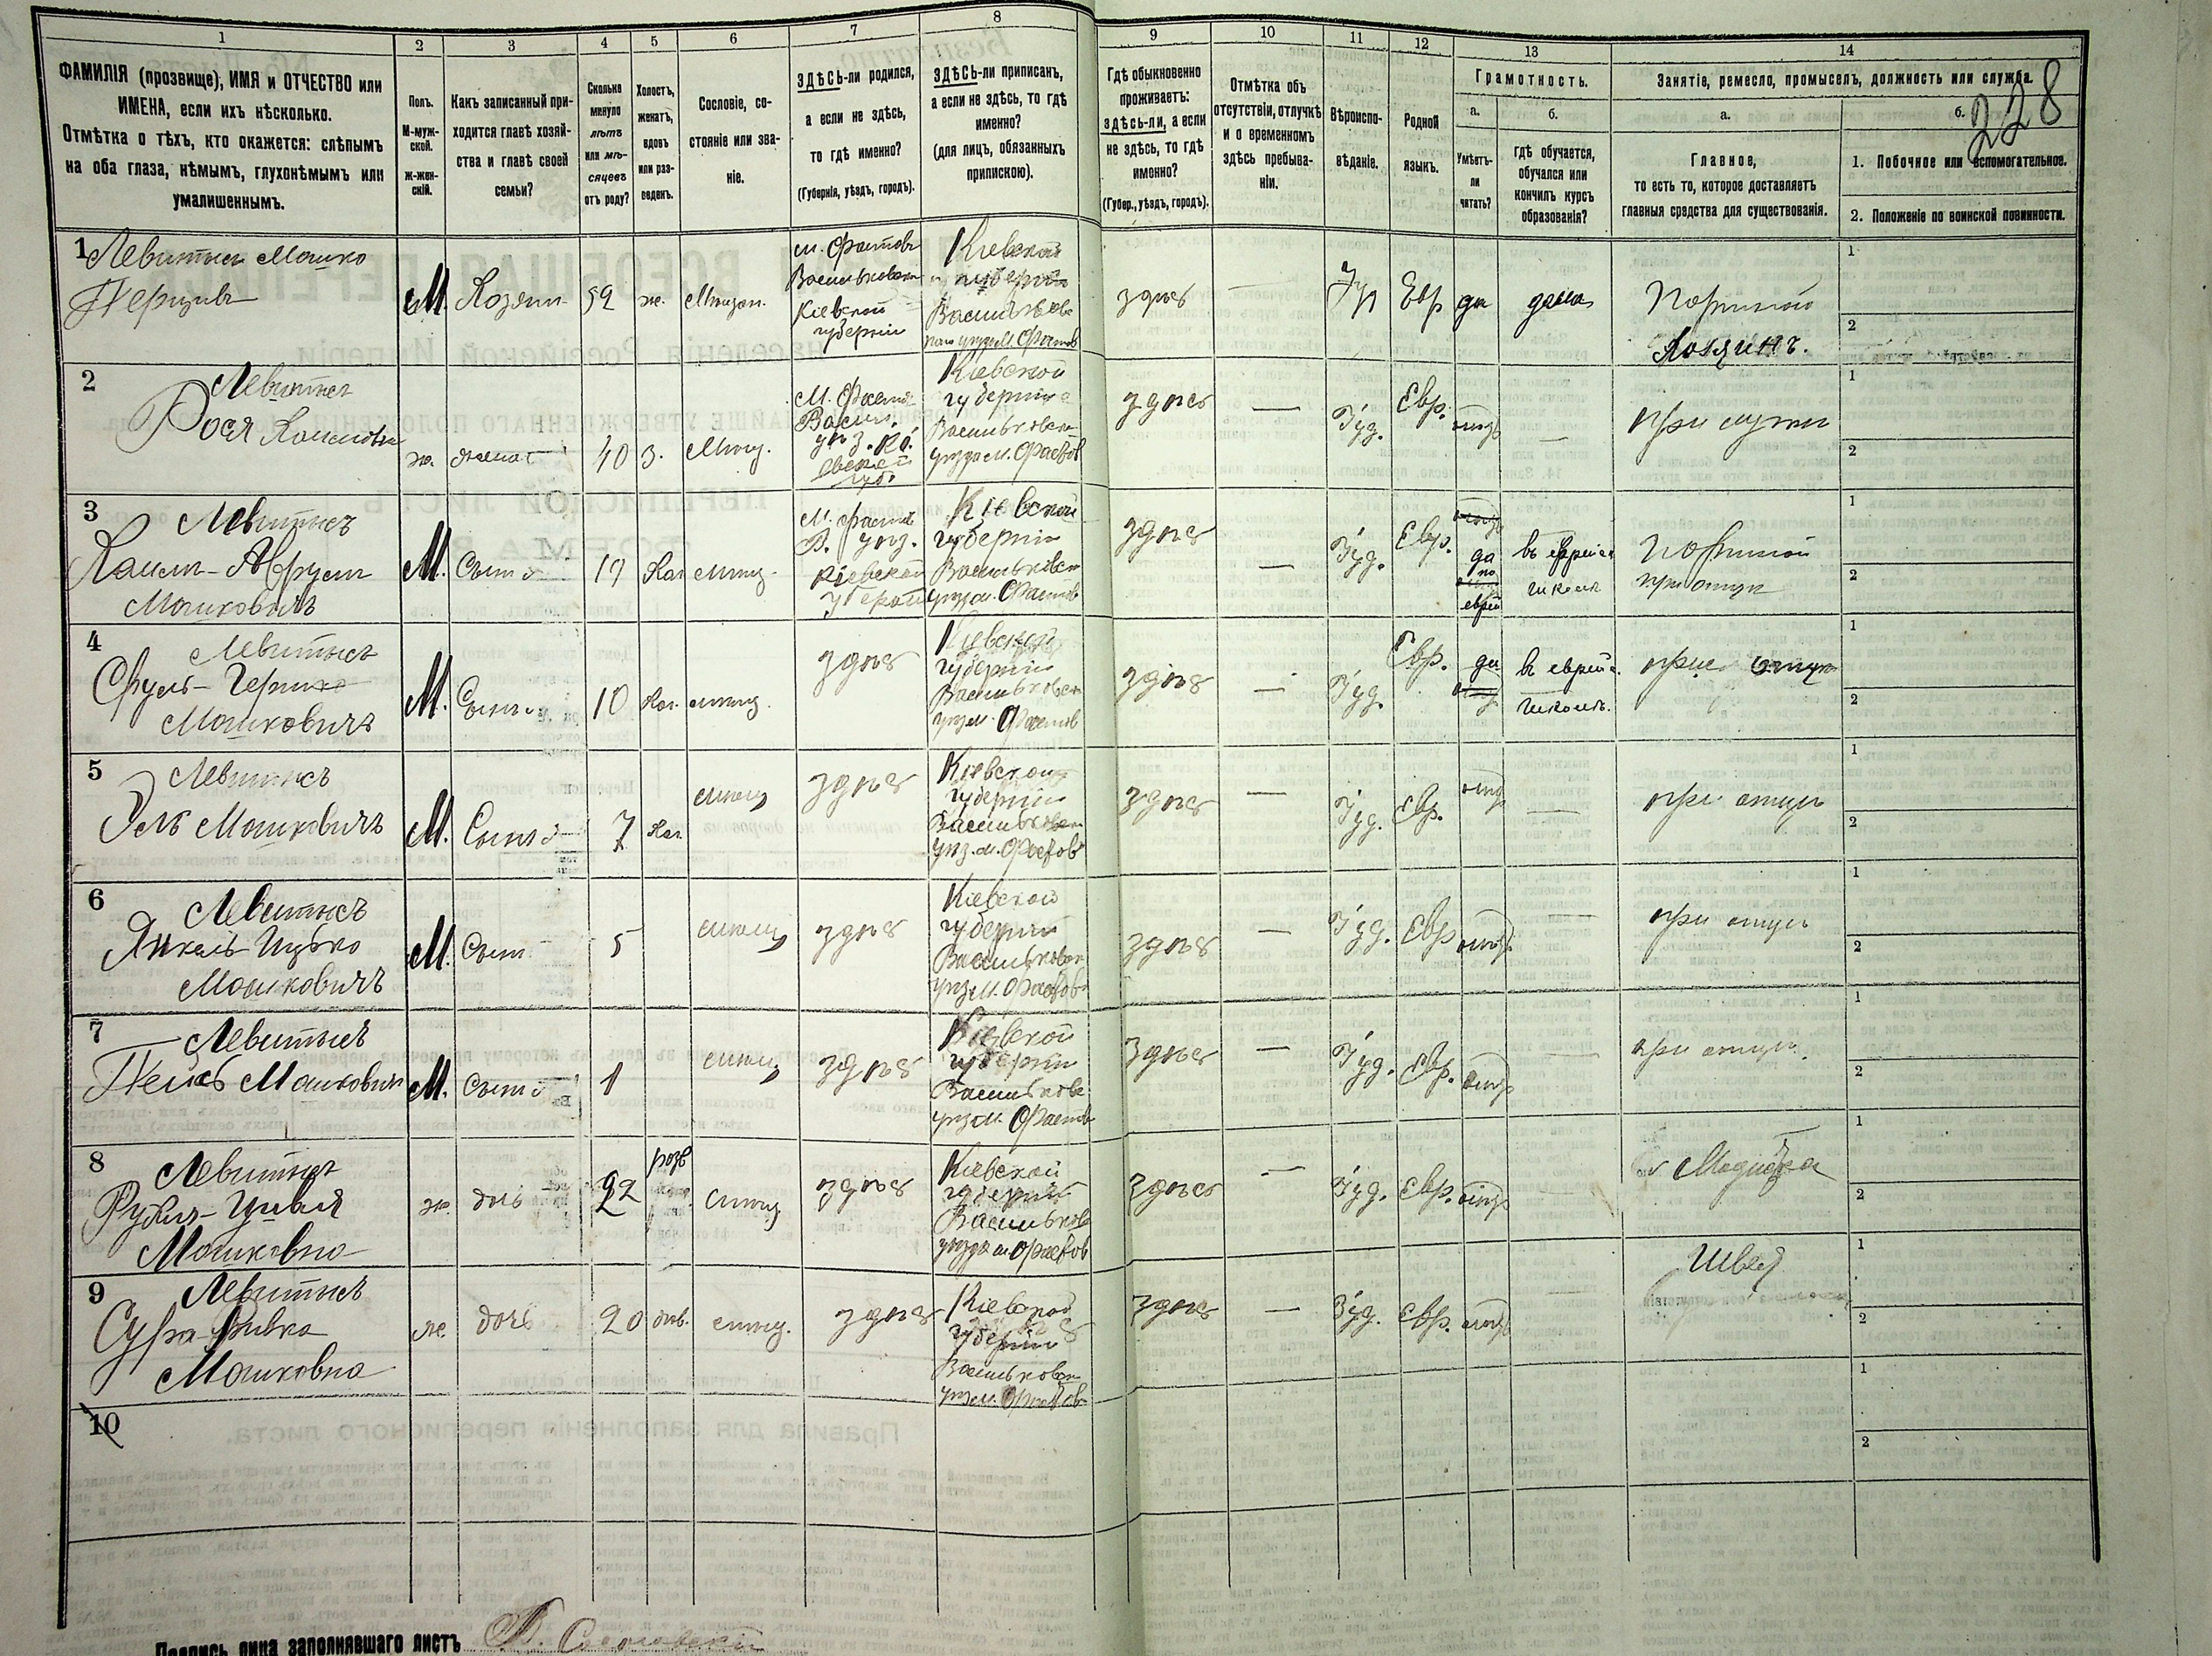 1 2 3 4 5 6 7 8 9 10 11 12 13 14
228
ФАМИЛІЯ (прозвище), ИМЯ и ОТЧЕСТВО или
ИМЕНА, если ихъ нѣсколько.
Отмѣтка о тѣхъ, кто окажется: слѣпымъ
на оба глаза, нѣмымъ, глухонѣмымъ или
умалишеннымъ.
Полъ.
М-муж-
ской.
ж-жен-
скій.
Какъ записанный при-
ходится главѣ хозяй-
ства и главѣ своей
семьи?
Сколько
минуло
лѣтъ
или мѣ-
сяцевъ
отъ роду?
Холостъ,
женатъ,
вдовъ
или раз-
веденъ.
Сословіе, со-
стояніе или зва-
ніе.
ЗДѢСЬ-ли родился,
а если не здѣсь,
то гдѣ именно?
(Губернія, уѣздъ, городъ).
ЗДѢСЬ-ли приписанъ,
а если не здѣсь, то гдѣ
именно?
(для лицъ, обязанныхъ
припискою).
Гдѣ обыкновенно
проживаетъ:
здѣсь-ли, а если
не здѣсь, то гдѣ
именно?
(Губер., уѣздъ, городъ).
Отмѣтка объ
отсутствіи, отлучкѣ
и о временномъ
здѣсь пребыва-
ніи.
Вѣроиспо-
вѣданіе.
Родной
языкъ.
Грамотность.
а.
Умѣетъ-
ли
читать?
б.
гдѣ обучается,
обучался или
кончилъ курсъ
образованія?
Занятіе, ремесло, промыселъ, должность или служба.
а.
Главное,
то есть то, которое доставляетъ
главныя средства для существованія.
б.
1. Побочное или вспомогательное.
2. Положеніе по воинской повинности.
1 Левитнсъ Мошко
М. Хозяин 52 ж. Мѣщан.
м. Фастовъ
Васильковска
Кіевской
губерніи
Кіевской
губерніи
Васильков
уѣзд. м. Фастовъ
здѣсь — Іуд Евр да дома
Портной
Хозяинъ.
1
2
2 Левитнсъ
Рося
ж. жена 40 з. Мѣщ.
М. Фастов
Васил.
уѣз. Кі
евской
губ.
Кіевской
губерніи
Васильковска
уѣзда м. Фастов
здѣсь — Іуд. Евр. —
при мужи
1
2
3 Левитнсъ
Мошковичъ
М. Сынъ Хол мѣщ
М. Фастов
В. уѣзд.
Кіевской
Кіевской
губерніи
Васильковска
уѣзд м. Фастов
здѣсь — Іуд. Евр.
да
по
еврей
въ еврейс
школѣ
Портной
при отцѣ
1
2
4 Левитнсъ
Сруль-Гершко
Мошковичъ
М. Сынъ 10 Хол. мѣщ. здѣсь
Кіевской
губерніи
Васильковска
уѣз м. Фастов
здѣсь — Іуд. Евр. да
въ еврейс.
школѣ.
при отцѣ
1
2
5 Левитнсъ
Мошковичъ
М. Сынъ 7 Хол мѣщ здѣсь
Кіевской
губерніи
Васильковск
уѣз. м. Фастов
здѣсь — Іуд. Евр. —
при отцѣ
1
2
6 Левитнсъ
Янкель
Мошковичъ
М. Сынъ 5 мѣщ здѣсь
Кіевской
губерніи
Васильковск
уѣз м. Фастов
здѣсь — Іуд. Евр —
при отцѣ
1
2
7 Левитнсъ
Мошкович
М. Сынъ 1 мѣщ здѣсь
Кіевской
губерніи
Васильков
уѣз м. Фастов
здѣсь — Іуд. Евр. —
при отцѣ
1
2
8 Левитнсъ
Цивья
Мошковна
ж. дочь 22 розв мѣщ здѣсь
Кіевской
губерніи
Васильков
уѣзда м. Фастов
здѣсь — Іуд. Евр. —
Модистка
1
2
9 Левитнсъ
Сура-Ривка
Мошковна
ж. дочь 20 дѣв. мѣщ. здѣсь
Кіевской
губерніи
Васильковск
уѣз м. Фастов
здѣсь — Іуд. Евр. —
Швея
1
2
10
1
2
Подпись лица заполнявшаго листъ